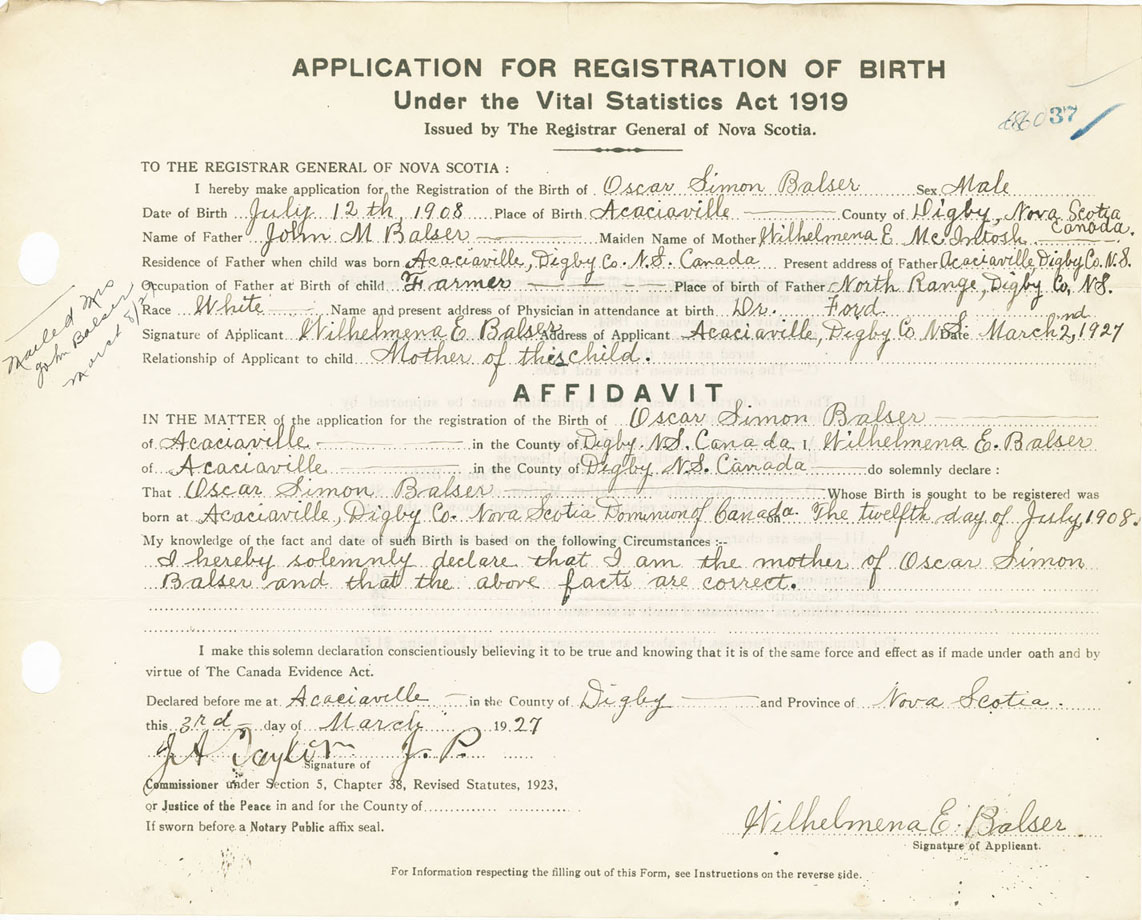 APPLICATION FOR REGISTRATION OF BIRTH
Under the Vital Statistics Act 1919
Issued by The Registrar General of Nova Scotia.
37
TO THE REGISTRAR GENERAL OF NOVA SCOTIA :
I hereby make application for the Registration of the Birth of Oscar Simon Balser Sex Male
Date of Birth July 12th, 1908 Place of Birth Acaciaville County of Digby, Nova Scotia Canada.
Name of Father John M Balser Maiden Name of Mother Wilhelmena E McIntosh
Residence of Father when child was born Acaciaville, Digby Co. N.S. Canada Present address of Father Acaciaville Digby Co. N.S.
Occupation of Father at Birth of child Farmer Place of birth of Father North Range, Digby Co, N.S.
Race White Name and present address of Physician in attendance at birth Dr. Ford.
Signature of Applicant Wilhelmena E Balser Address of Applicant Acaciaville, Digby Co N.S. Date March 2nd, 1927
Relationship of Applicant to child Mother of this child.
Mailed Mrs
John Balser
March 8/27
AFFIDAVIT
IN THE MATTER of the application for the registration of the Birth of Oscar Simon Balser
of Acaciaville in the County of Digby N.S. Canada I, Wilhelmena E. Balser
of Acaciaville in the County of Digby N.S. Canada do solemnly declare :
That Oscar Simon Balser Whose Birth is sought to be registered was
born at Acaciaville, Digby Co. Nova Scotia Dominion of Canada. on The twelfth day of July, 1908.
My knowledge of the fact and date of such Birth is based on the following Circumstances :--
I hereby solemnly declare that I am the mother of Oscar Simon
Balser and that the above facts are correct.
I make this solemn declaration conscientiously believing it to be true and knowing that it is of the same force and effect as if made under oath and by
virtue of The Canada Evidence Act.
Declared before me at Acaciaville in the County of Digby and Province of Nova Scotia.
this 3rd day of March 1927
J A Taylor J. P.
Signature of
Commissioner under Section 5, Chapter 38, Revised Statutes, 1923,
or Justice of the Peace in and for the County of
If sworn before a Notary Public affix seal.
Wilhelmena E. Balser.
Signature of Applicant.
For Information respecting the filling out of this Form, see Instructions on the reverse side.